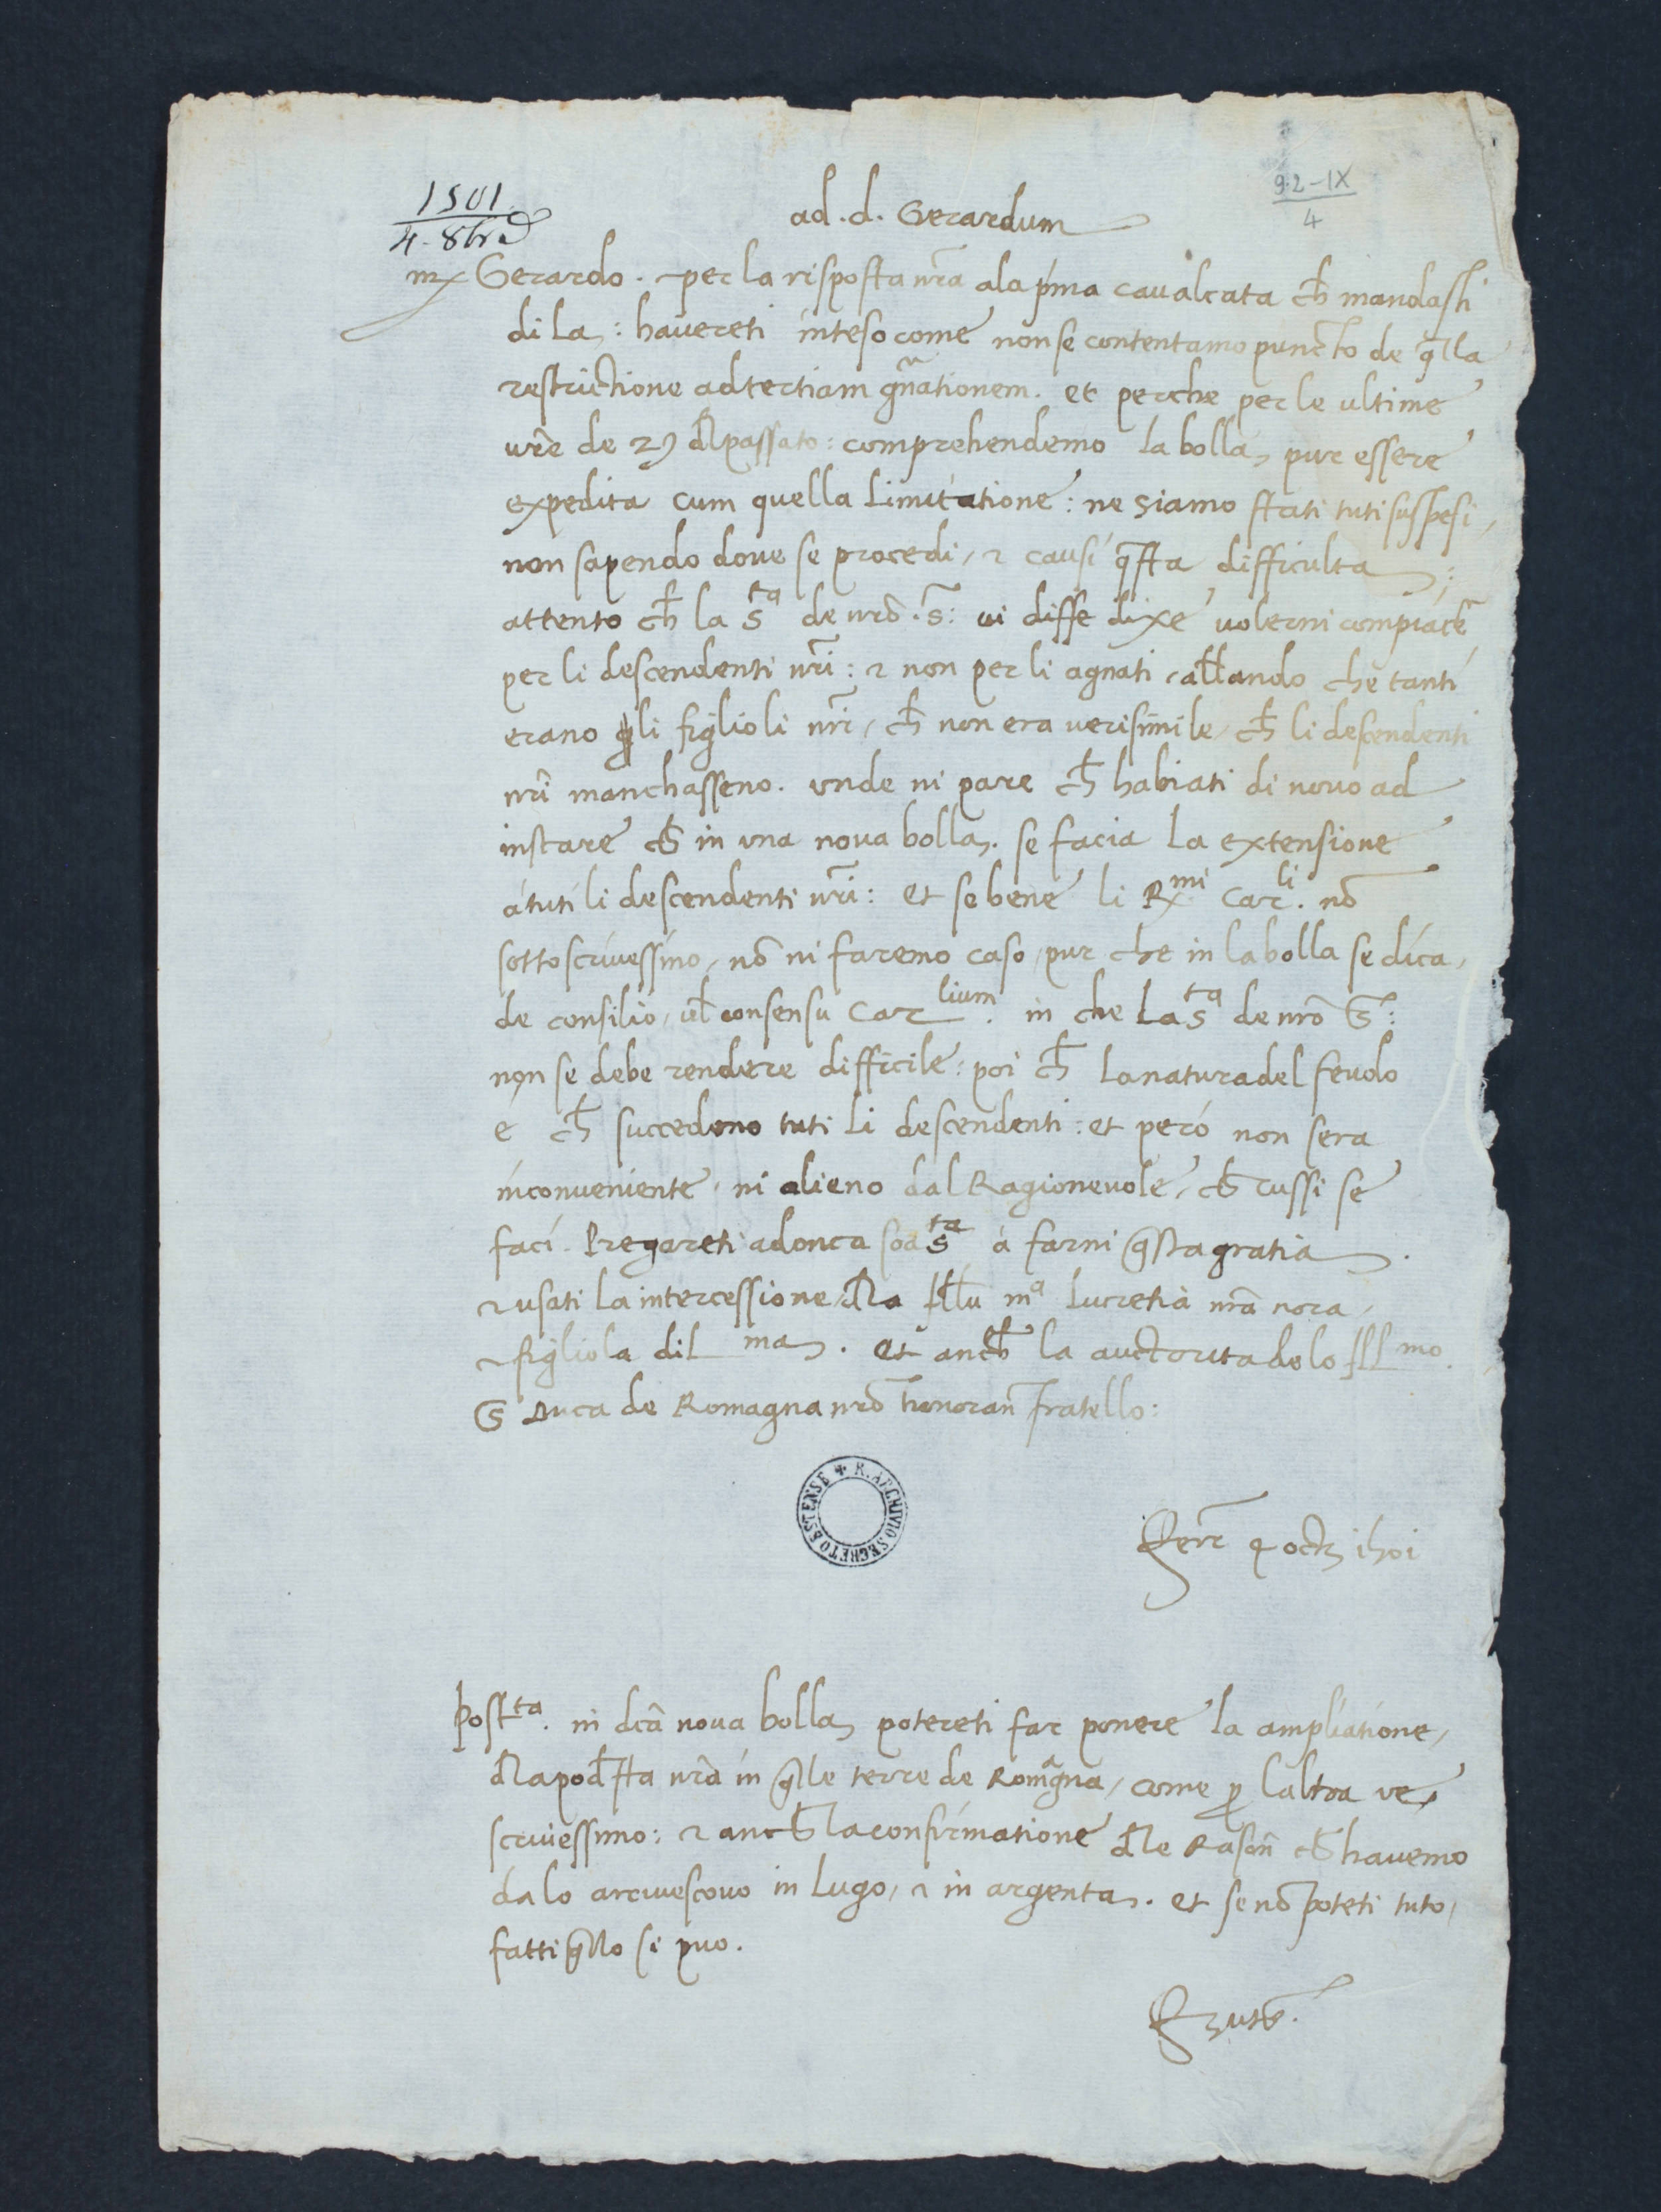 1501
4 - 8bre
9.2-IX
4
ad. d. Gerardum
mx Gerardo. per la risposta nr̃a ala p̃ma caualcata ch̃ mandasti
di la: hauereti inteso come non se contentamo puncto de q̃lla
restrictione ad tertiam gñationem. et perche per le ultime
ur̃e de 29 dl̃ passato: comprehendemo la bolla, pur essere
expedita cum quella limitatione: ne siamo stati tuti suspesi,
non sapendo doue se procedi, & causi q̃sta difficulta;
attento ch̃ la Sta de nr̃o. S: ui disse dixe uolerni compiacẽ
per li descendenti nr̃i: & non per li agnati, all̃ando che tanti
erano li figlioli nr̃i, ch̃ non era uerisimile, ch̃ li descendenti
nr̃i manchasseno. unde ni pare ch̃ habiati di nouo ad
instare ch̃ in una noua bolla, se facia la extensione
à tuti li descendenti nr̃i: et se bene li Rx.mi Car.li nõ
sottoscriuessino, nõ ni faremo caso, pur che in la bolla se dica,
de consilio, ul̃ consensu Carlium. in che la Sta de nr̃o S:
non se debe rendere difficile: poi ch̃ la natura del feudo
è ch̃ succedono tuti li descendenti: et però non sera
inconueniente, ni alieno dal Ragioneuole, ch̃ cussi se
faci. Pregareti adonca soa Sta à farni q̃sta gratia.
& usati la intercessione dl̃a Ill̃u ma Lucretia nr̃a nora,
& figliola di L ma. et anch̃ la auctorita de lo Illmo.
S Duca de Romagna nr̃o honorañ fratello:
R. ARCHIVIO SEGRETO ESTENSE
Ferr̃ 4 octz 1501
Postta. in dc̃a noua bolla, potereti far ponere la ampliatione,
dl̃a pod̃sta nr̃a in q̃lle terre de Romãgna, come p̱ laltra ve
scriuessimo: & anch̃ la confirmatione dl̃e Rasoñ ch̃ hauemo
da lo arciuescouo in Lugo, & in argenta. et se nõ poteti tuto,
fatti q̃llo si puo.